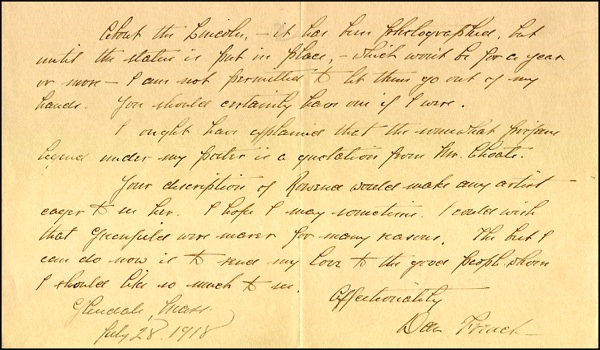 About the Lincoln, – it has been photographed, but
until the statue is put in place, – which won't be for a year
or more – I am not permitted to let them go out of my
hands. You should certainly have one if I were.
I ought have explained that the somewhat profane
legend under my poster is a quotation from Mr. Choate.
Your description of Rowena would make any artist
eager to see her. I hope I may sometime. I could wish
that Greenfield were nearer for many reasons. The best I
can do now is to send my love to the good people whom
I should like so much to see.
Affectionately
Glendale, Mass.
July 28. 1918
Dan French